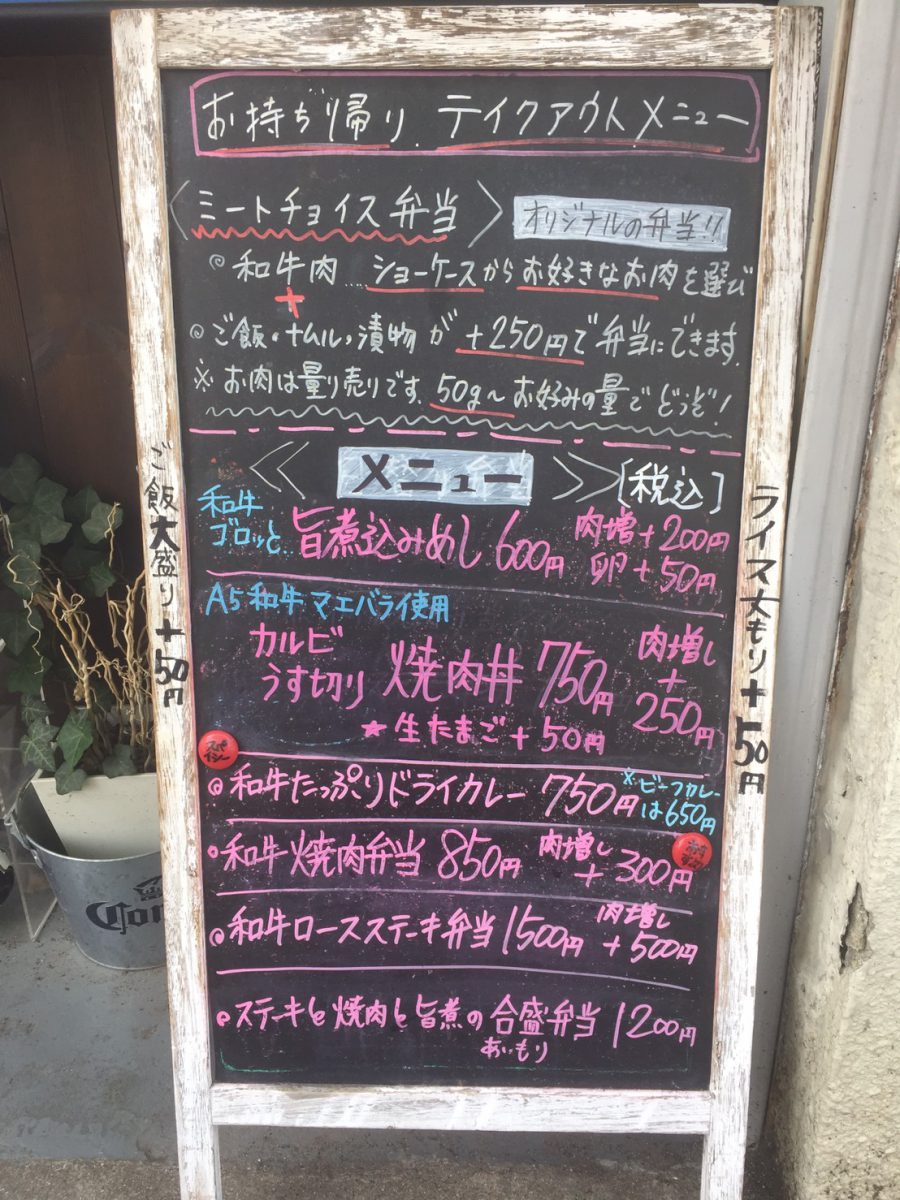 お持ち帰り テイクアウトメニュー
〈ミートチョイス弁当〉 オリジナルの弁当!!
◎和牛肉……ショーケースからお好きなお肉を選び
+
◎ご飯・ナムル・漬物が+250円で弁当にできます.
※お肉は量り売りです.50g〜お好みの量でどうぞ!
≪ メニュー ≫ [税込]
和牛
ゴロッと…旨煮込みめし 600円 肉増+200円
卵+50円
A5和牛マエバライ使用
カルビ
うす切り 焼肉丼 750円 肉増し
+
250円
★生たまご+50円
スパイシー
◎和牛たっぷりドライカレー 750円 ※ビーフカレー
は650円
・和牛焼肉弁当 850円 肉増し
+300円
◎和牛ロースステーキ弁当 1500円 肉増し
+500円
◎ステーキと焼肉と旨煮の合盛弁当 1200円
あいもり
ご飯大盛り+50円
ライス大もり+50円